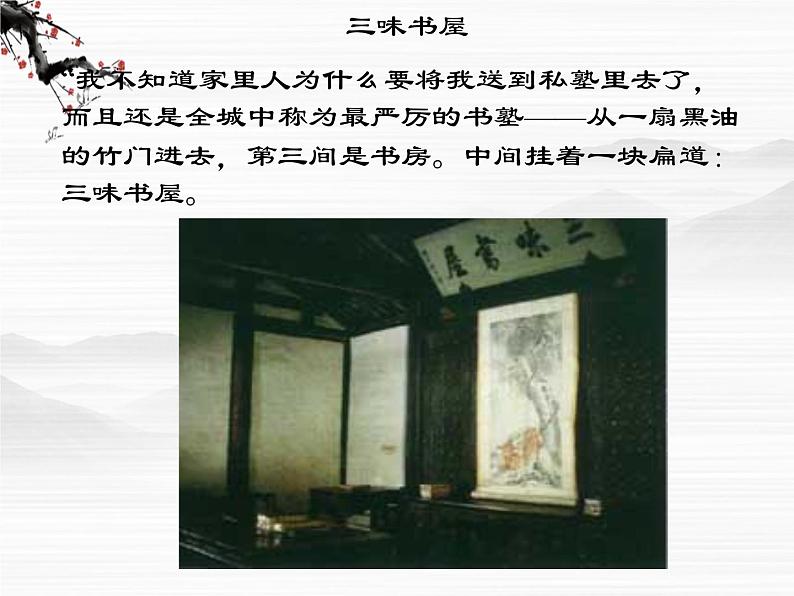 三味书屋
“我不知道家里人为什么要将我送到私塾里去了，
而且还是全城中称为最严厉的书塾——从一扇黑油
的竹门进去，第三间是书房。中间挂着一块扁道：
三味书屋。
三味書屋